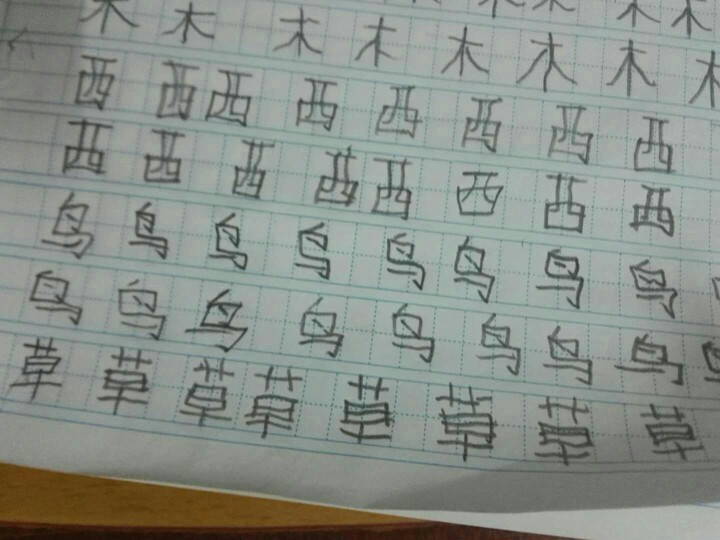 木 木 木 木 木 木 木 木
西 西 西 西 西 西 西 西
西 西 西 西 西 西 西 西
鸟 鸟 鸟 鸟 鸟 鸟 鸟 鸟
鸟 鸟 鸟 鸟 鸟 鸟 鸟 鸟
草 草 草 草 草 草 草 草